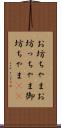 お坊ちゃまお
坊っちゃま御
坊ちゃま